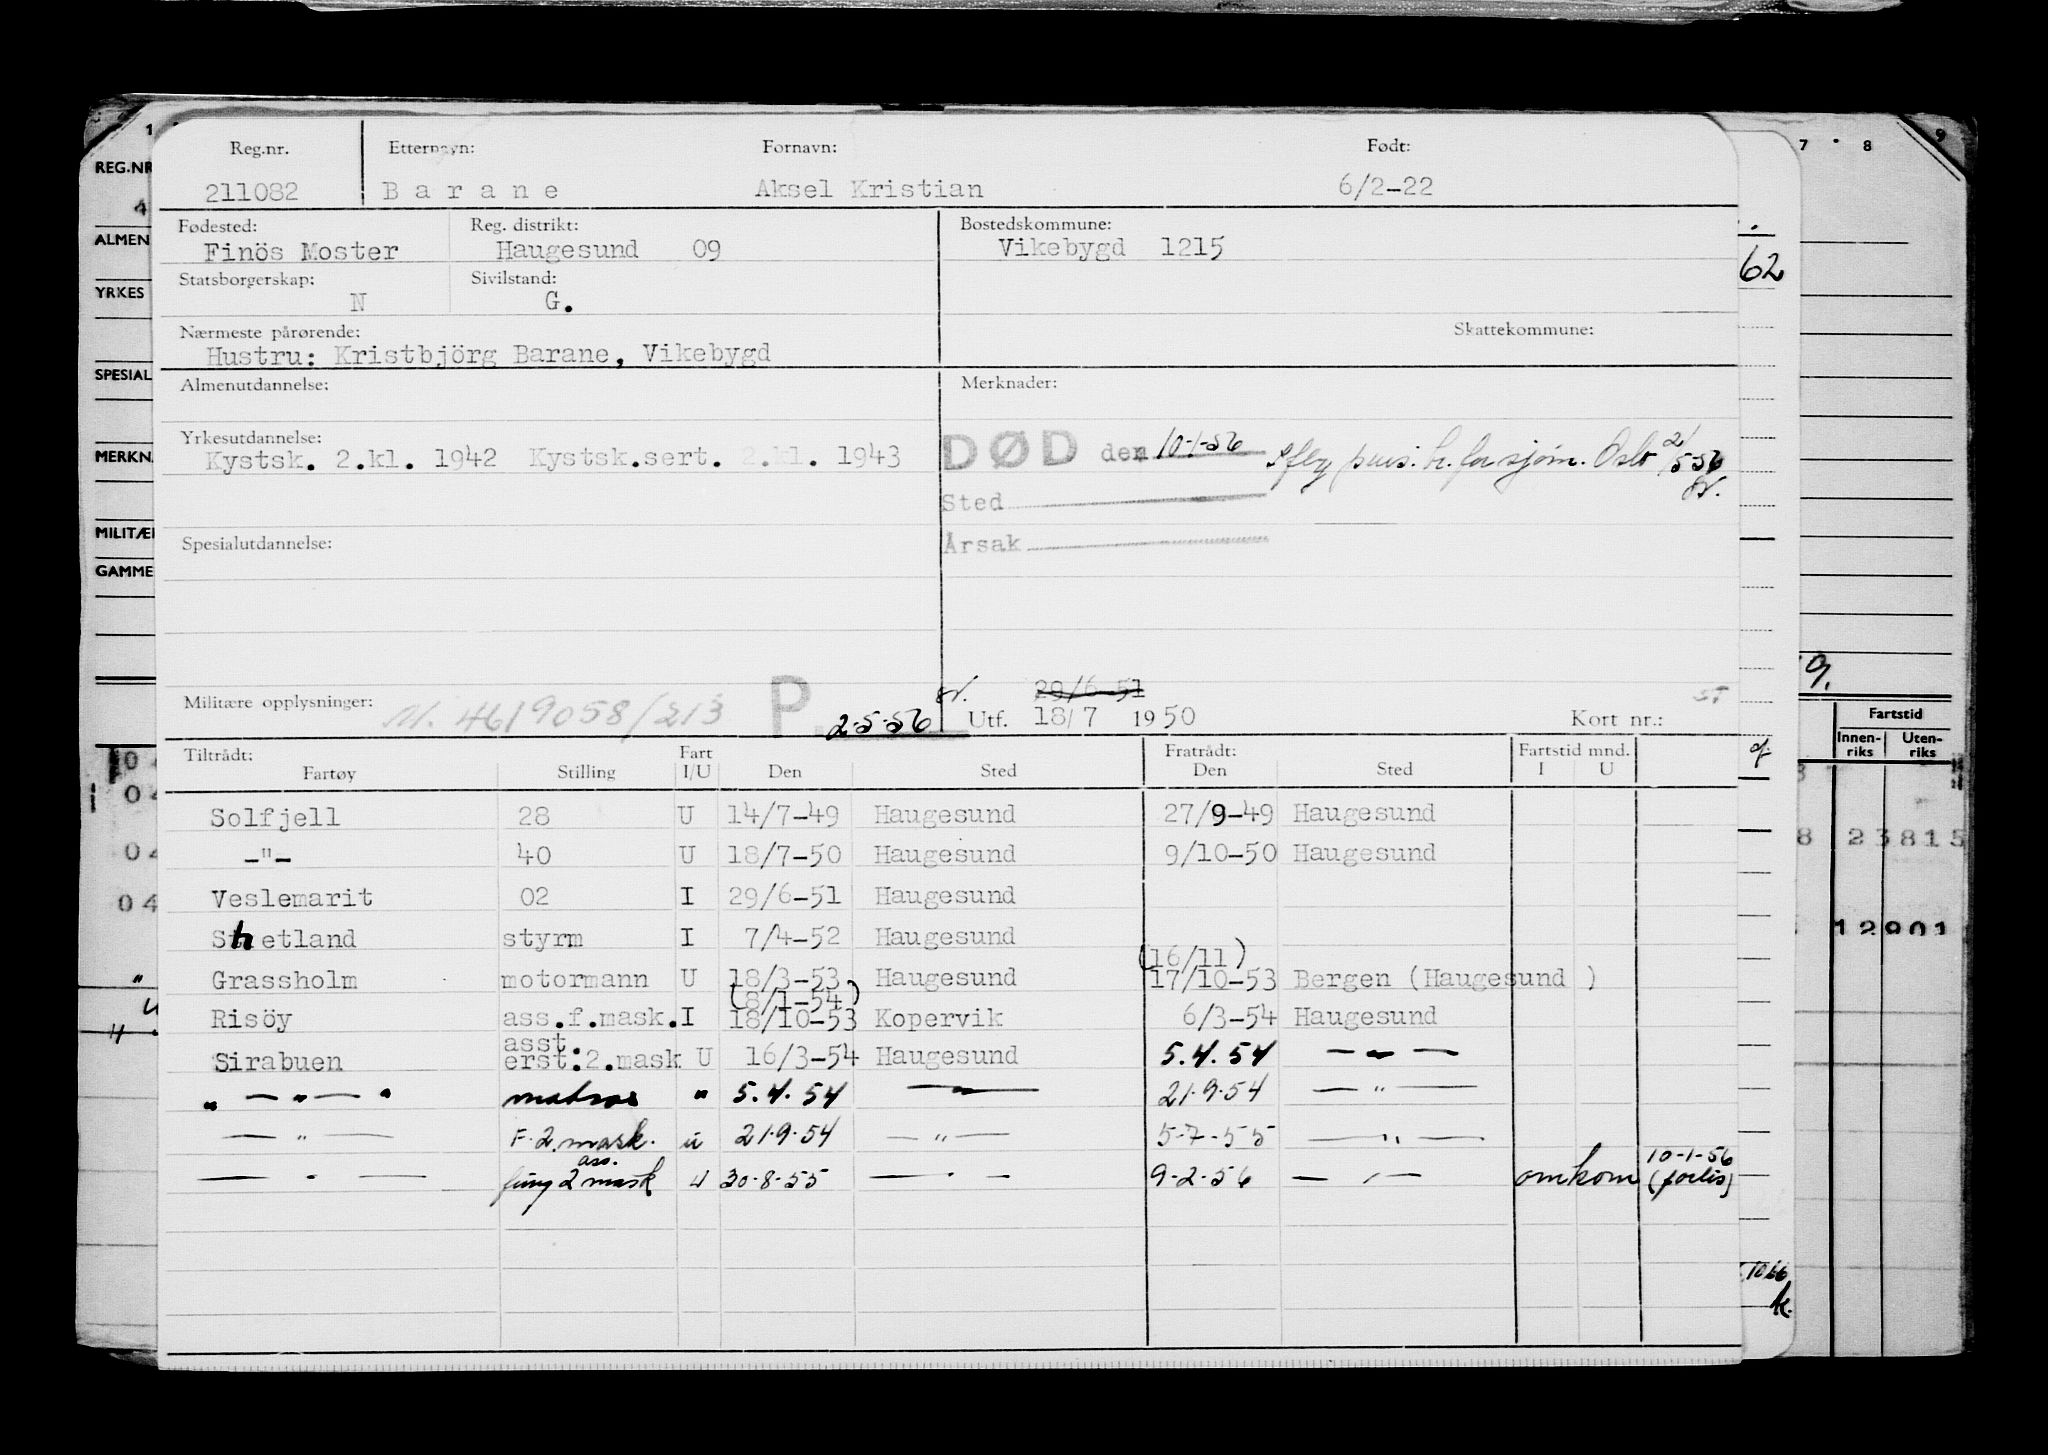 Reg.nr. Etternavn: Fornavn: Født:
211082 Barane Aksel Kristian 6/2-22
Fødested: Reg. distrikt: Bostedskommune:
Finös Moster Haugesund 09 Vikebygd 1215
Statsborgerskap: Sivilstand:
N G.
Nærmeste pårørende: Skattekommune:
Hustru: Kristbjörg Barane, Vikebygd
Almenutdannelse: Merknader:
Yrkesutdannelse:
Kystsk. 2.kl. 1942 Kystsk.sert. 2.kl. 1943
DØD den 10-1-56 h. for sjøm. Oslo 2/5-56
Sted
Spesialutdannelse: Årsak
29/6-51
Militære opplysninger: M. 4619058/213 P. 2-5-56 Utf. 18/7 1950 Kort nr.:
Tiltrådt: Fart Fratrådt: Fartstid mnd.
Fartøy Stilling I/U Den Sted Den Sted I U
Solfjell 28 U 14/7-49 Haugesund 27/9-49 Haugesund
-"- 40 U 18/7-50 Haugesund 9/10-50 Haugesund
Veslemarit 02 I 29/6-51 Haugesund
Shetland styrm I 7/4-52 Haugesund
(16/11)
Grassholm motormann U 18/3-53 Haugesund 17/10-53 Bergen (Haugesund )
(8/1-54)
Risöy ass.f.mask. I 18/10-53 Kopervik 6/3-54 Haugesund
asst.
Sirabuen erst.2.mask U 16/3-54 Haugesund 5.4.54 — " —
" — " — " matros " 5.4.54 — " — 21.9.54 — " —
— " — F. 2. mask. u 21.9.54 — " — 5-7-55 — " —
ass. 10-1-56
— " — fung 2 mask u 30.8.55 — " — 9-2-56 — " — omkom (forlis)
REG.NR
ALMEN
YRKES
SPESIAL
MERKN.
MILITÆR
GAMME
7 8 9
62
Fartstid
Innen-riks Uten-riks
8 23815
12901
04
04
04